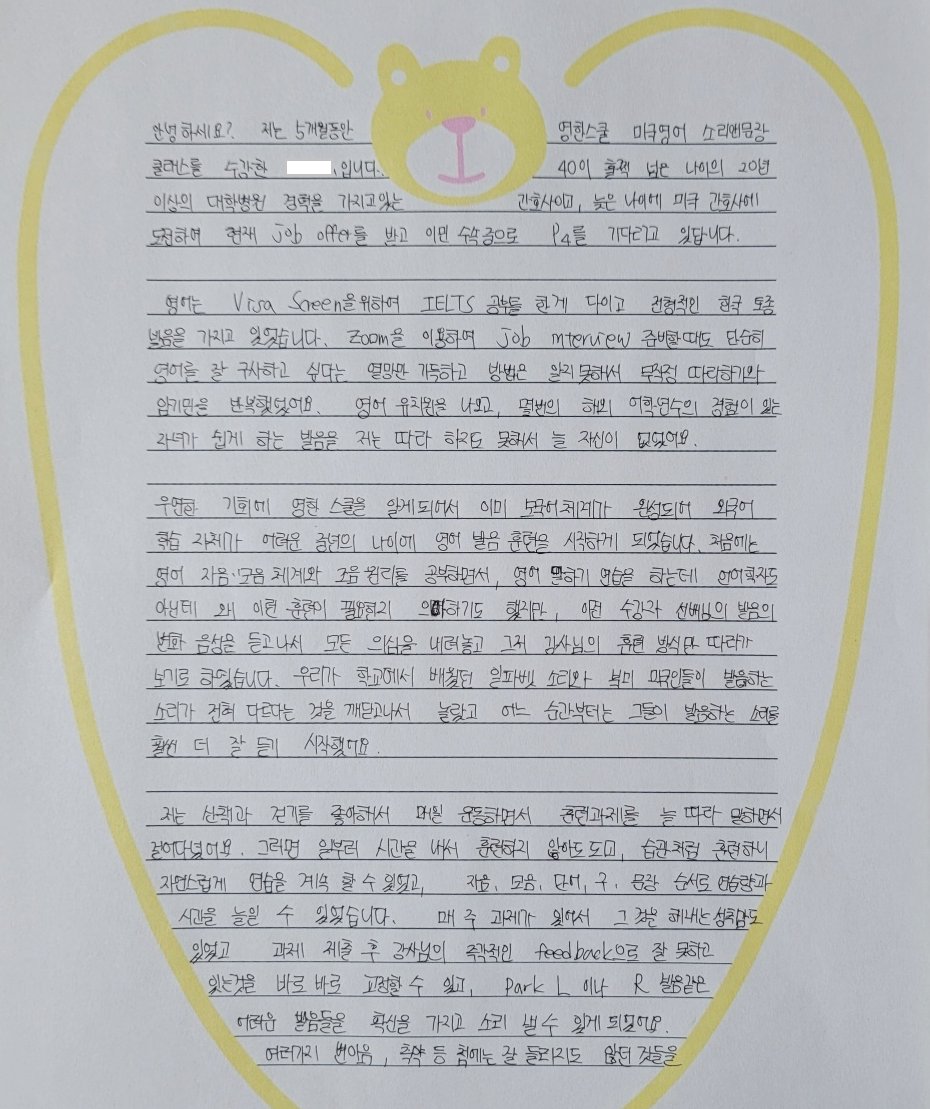 안녕하세요? 저는 5개월동안 영한스쿨 미국영어 소리앤문장
클래스를 수강한 입니다. 40이 훌쩍 넘은 나이의 20년
이상의 대학병원 경력을 가지고있는 간호사이고, 늦은 나이에 미국 간호사에
도전하여 현재 job offer를 받고 이민 수속중으로 P4를 기다리고 있답니다.
영어는 Visa Screen을 위하여 IELTS 공부를 한게 다이고 전형적인 한국 토종
발음을 가지고 있었습니다. Zoom을 이용하여 job interview 준비할때도 단순히
영어를 잘 구사하고 싶다는 열망만 가득하고 방법은 알지 못해서 무작정 따라하기와
암기만을 반복했었어요. 영어 유치원을 나오고, 몇번의 해외 어학연수의 경험이 있는
자녀가 쉽게 하는 발음을 저는 따라 하지도 못해서 늘 자신이 없었어요.
우연한 기회에 영한 스쿨을 알게되어서 이미 모국어체계가 완성되어 외국어
학습 자체가 어려운 중년의 나이에 영어 발음 훈련을 시작하게 되었습니다. 처음에는
영어 자음·모음 체계와 조음 원리를 공부하면서, 영어 말하기 연습을 하는데 언어학자도
아닌데 왜 이런 훈련이 필요한지 의아하기도 했지만, 이전 수강자 선배님의 발음의
변화 음성을 듣고나서 모든 의심을 내려놓고 그저 강사님의 훈련 방식만 따라가
보기로 하였습니다. 우리가 학교에서 배웠던 알파벳 소리와 북미 미국인들이 발음하는
소리가 전혀 다르다는 것을 깨닫고나서 놀랐고 어느 순간부터는 그들이 발음하는 소리를
훨씬 더 잘 듣기 시작했어요.
저는 산책과 걷기를 좋아해서 매일 운동하면서 훈련과제를 늘 따라 말하면서
걸어다녔어요. 그러면 일부러 시간을 내서 훈련하지 않아도 되고, 습관처럼 훈련하니
자연스럽게 연습을 계속 할 수 있었고, 자음, 모음, 단어, 구, 문장 순서로 연습량과
시간을 늘릴 수 있었습니다. 매 주 과제가 있어서 그것을 해내는 성취감도
있었고 과제 제출 후 강사님의 즉각적인 feedback으로 잘 못하고
있는것을 바로 바로 교정할 수 있고, Park L 이나 R 발음같은
어려운 발음들을 확신을 가지고 소리 낼 수 있게 되었어요.
여러가지 변이음, 축약 등 첨에는 잘 들리지도 않던 것들을